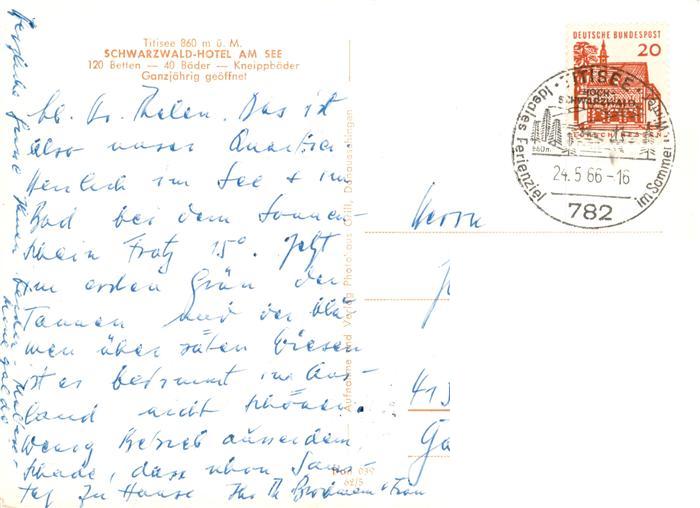 Titisee 860 m ü. M.
SCHWARZWALD-HOTEL AM SEE
120 Betten — 40 Bäder — Kneippbäder
Ganzjährig geöffnet
DEUTSCHE BUNDESPOST
20
TITISEE
HOCH-
SCHWARZWALD
860m
Ideales Ferienziel
im Sommer
24.5.66-16
782
lb. Dr. Thelen. Das ist
also unser Quartier.
Herrlich im See + im
Bad bei dem Sonnen-
schein trotz 15°. Jetzt
im ersten Grün der
Tannen und der
über satten Wiesen
ist es bestimmt im Aus-
land nicht schöner.
Wenig Betrieb ausserdem.
Schade, dass schon Sams-
tag zu Hause Ihr + Frau
Herrn
413
Herzliche Ihnen
Aufnahme und Verlag Photohaus Grill, Donaueschingen
62/5